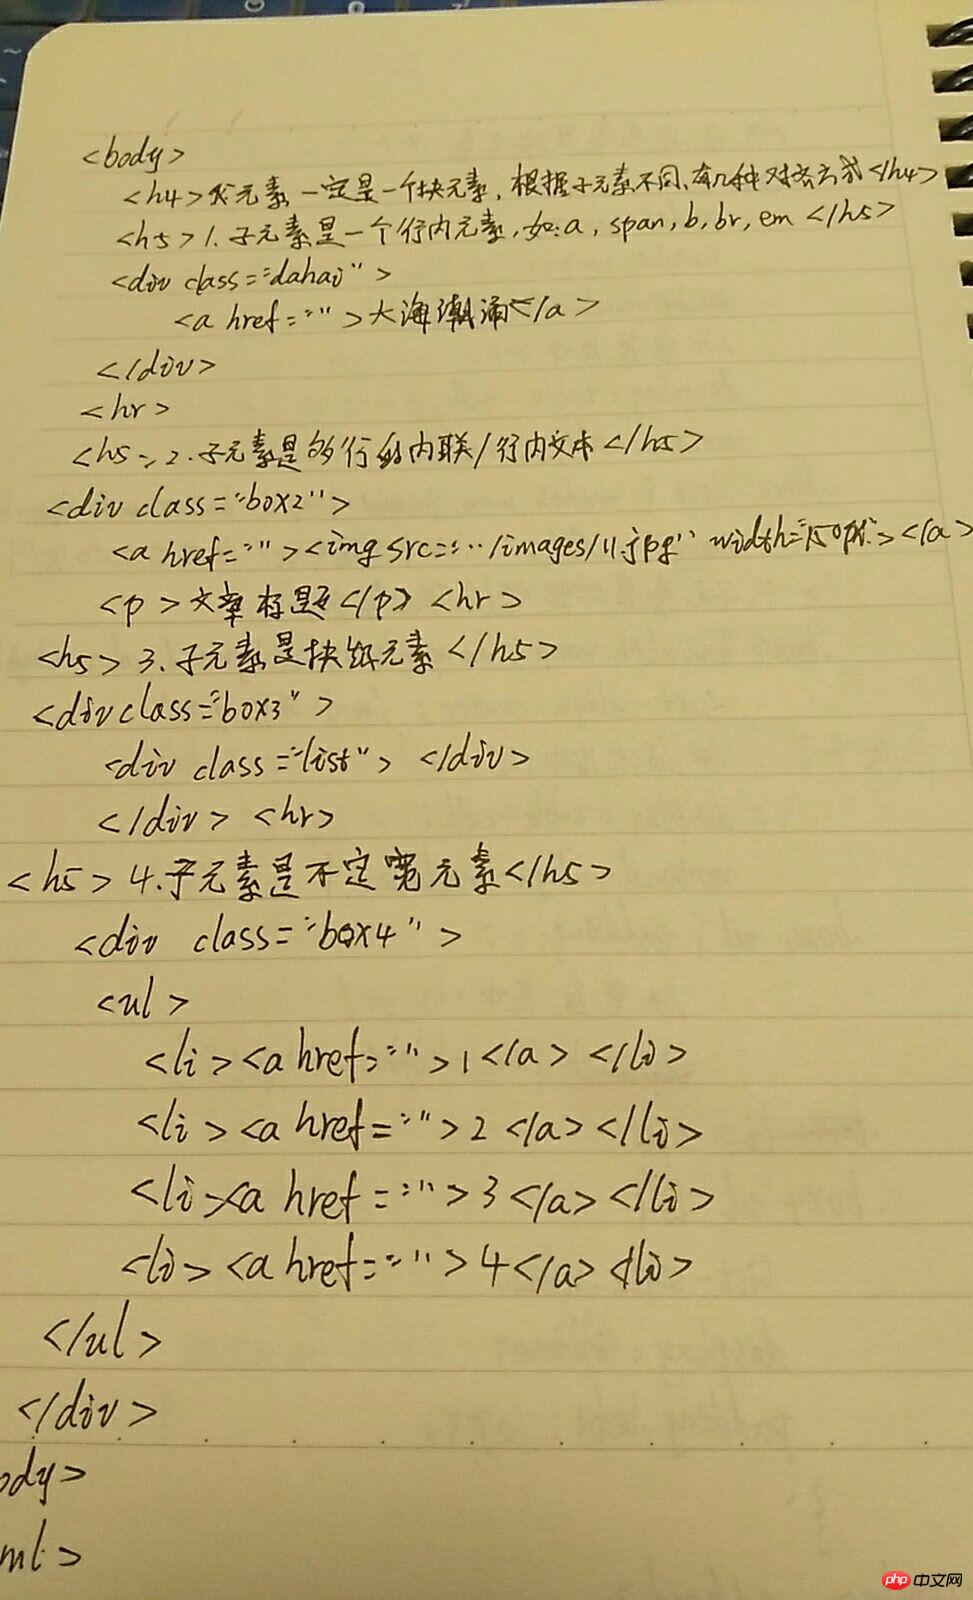 <body>
<h4>父元素一定是一个块元素,根据子元素不同,有几种对齐方式</h4>
<h5>1.子元素是一个行内元素,如:a,span,b,br,em</h5>
<div class="dahai">
<a href="">大海潮涌</a>
</div>
<hr>
<h5>2.子元素是多行的内联/行内文本</h5>
<div class="box2">
<a href=""><img src="../images/11.jpg" width="150px"></a>
<p>文章标题</p> <hr>
<h5>3.子元素是块级元素</h5>
<div class="box3">
<div class="list"> </div>
</div> <hr>
<h5>4.子元素是不定宽元素</h5>
<div class="box4">
<ul>
<li><a href="">1</a> </li>
<li><a href="">2</a></li>
<li><a href="">3</a></li>
<li><a href="">4</a><li>
</ul>
</div>
ody>
ml>
php中文网